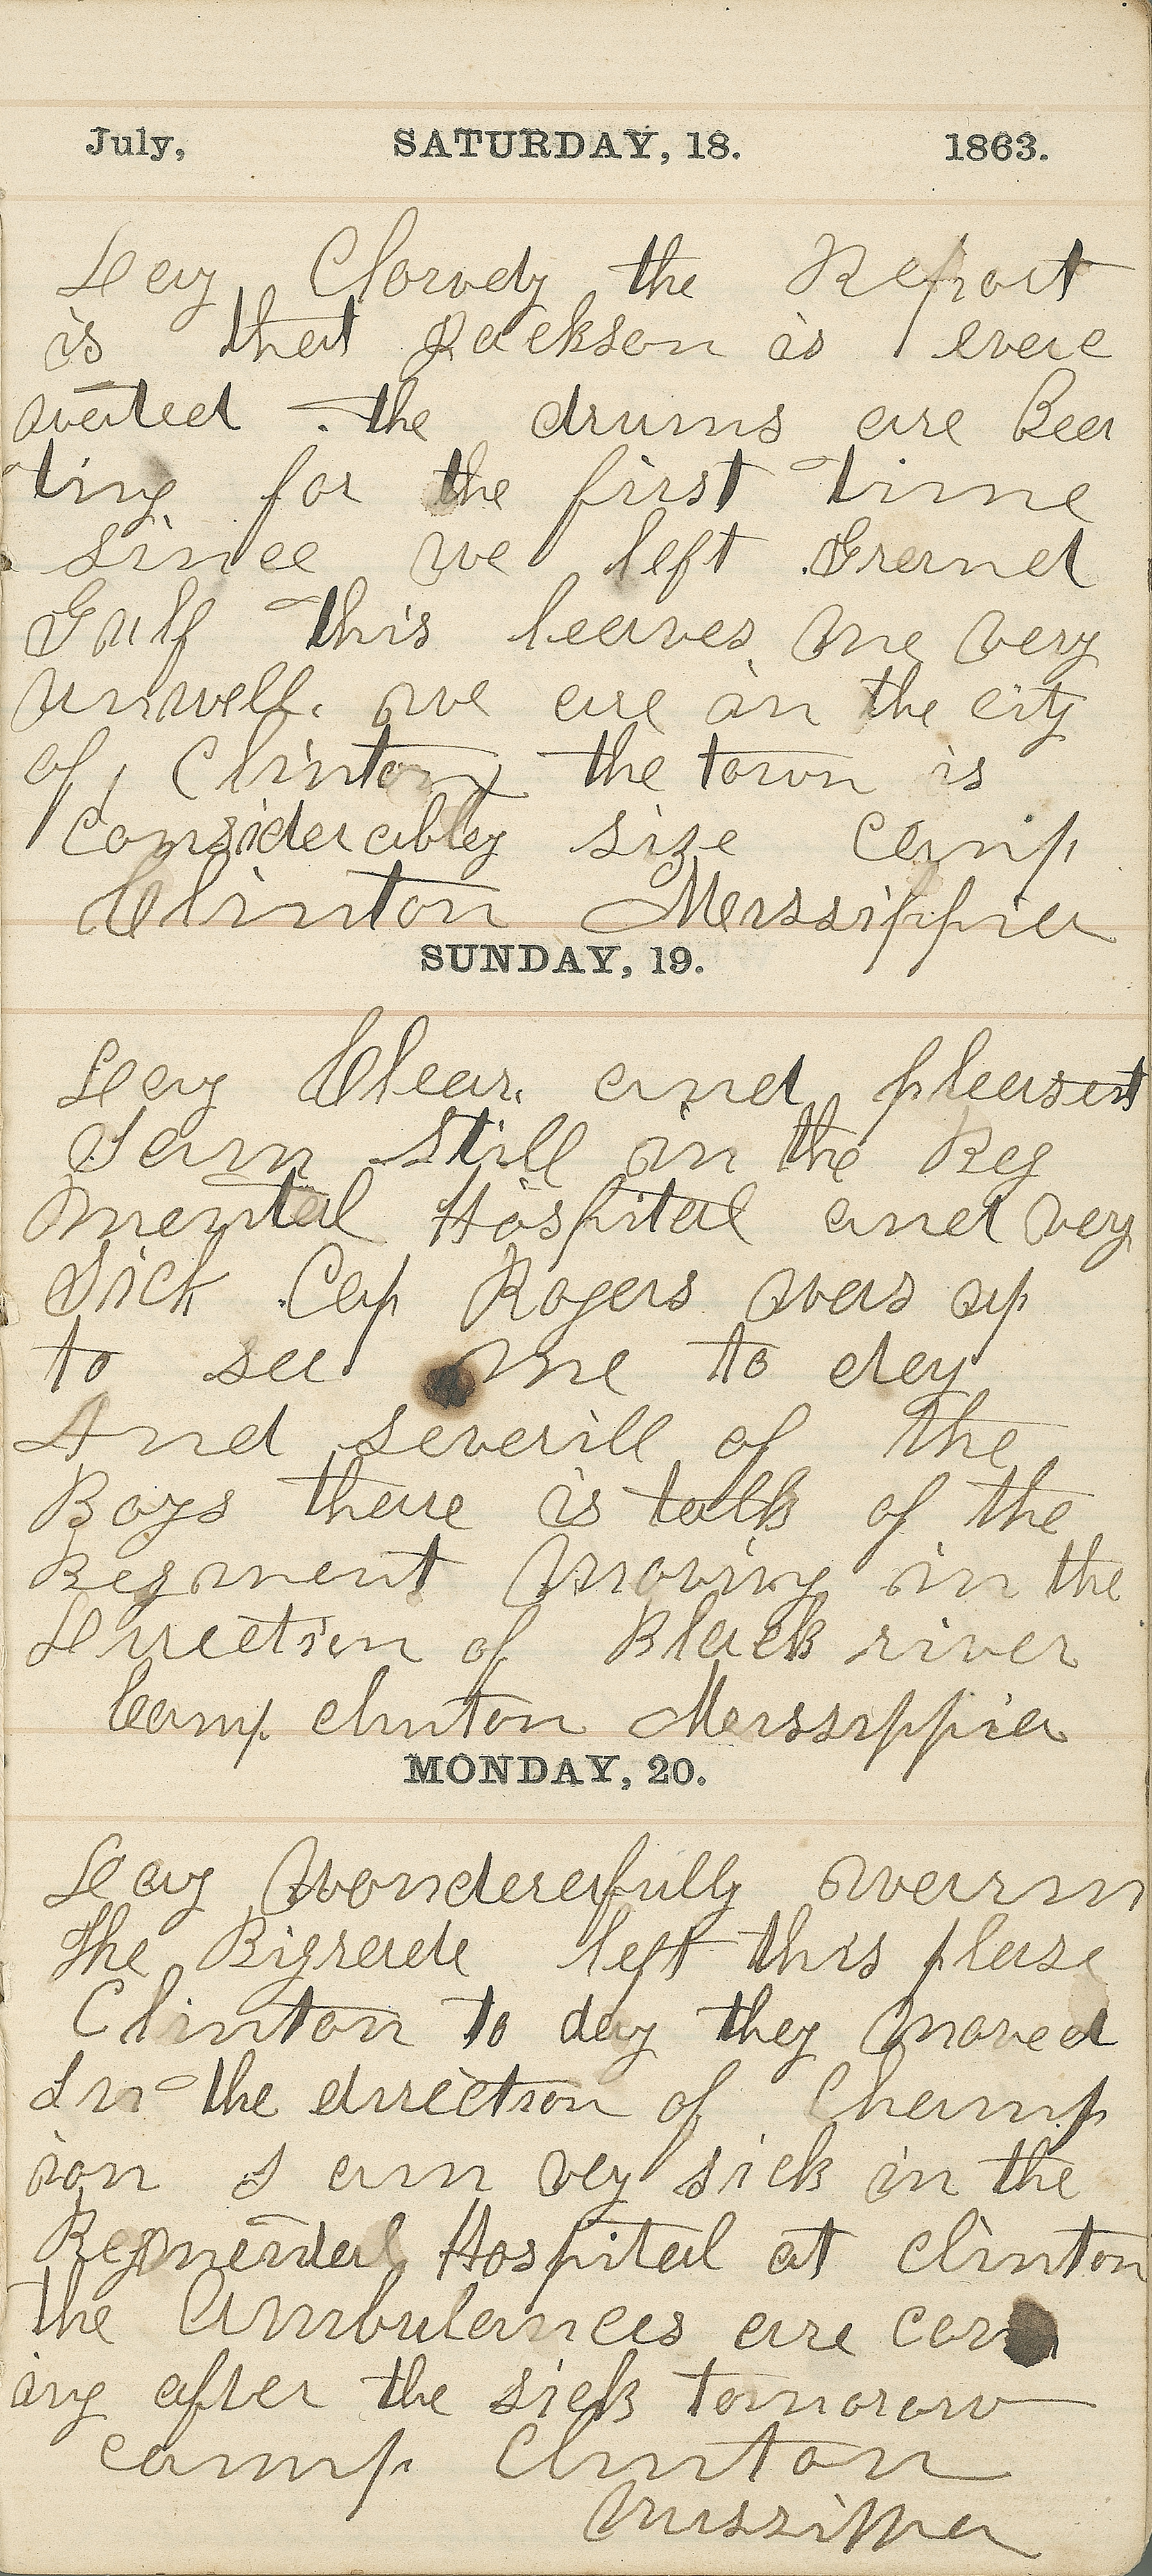 July, SATURDAY, 18. 1863.
Day Clowdy the Report
is that Jackson is evac
uated . the drums are Bea
ting for the first time
since we left Grand
Gulf this leaves me very
unwell. we are in the city
of Clinton the town is
Considerably size Camp
Clinton Merssippia
SUNDAY, 19.
Day Clear. and pleasent
I am still in the Reg
mental Hospital and very
Sick Cap Rogers was up
to see me to day
And severill of the
Boys there is talk of the
Regment moving in the
Direction of Black river
Camp clinton Merssippia
MONDAY, 20.
Day Wonderafully warm
the Bigrade left this plase
Clinton to day they moved
In the direction of Champ
ion I am very sick in the
Regmental Hospital at clinton
the Ambulances are com
ing after the sick tomorow
camp Clinton